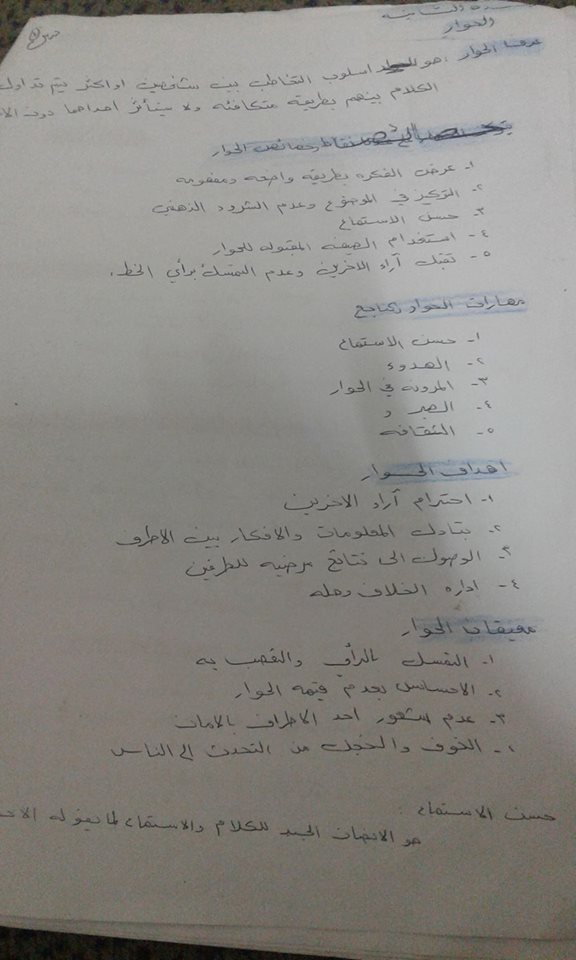 الحوار
عرف الحوار : هو اسلوب التخاطب بين شخصين او اكثر يتم تداول
الكلام بينهم بطريقه متكافئه ولا يتأثر احداهما دون
نقاط خصائص الحوار
١- عرض الفكره بطريقه واضحه ومفهومه
٢- التركيز في الموضوع وعدم الشرود الذهني
٣- حسن الاستماع
٤- استخدام الصيغه المقبوله للحوار
٥- تقبل آراء الاخرين وعدم التمسك برأي الخطـ.
مهارات الحوار ناجح
١- حسن الاستماع
٢- الهدوء
٣- المرونه في الحوار
٤- الصبر و
٥- الثقافه
اهداف الحوار
١- احترام آراء الاخرين
٢- بتبادل المعلومات والافكار بين الاطرف
٣- الوصول الى نتائج مرضيه للطرفين
٤- اداره الخلاف وحله
معيقات الحوار
١- التمسك بالرأي والتعصب به
٢- الاحساس بعدم قيمه الحوار
٣- عدم شعور احد الاطراف بالامان
٤- الخوف والخجل من التحدث إلى الناس
حسن الاستماع :
هو الانصات الجيد للكلام والاستماع لما يقوله